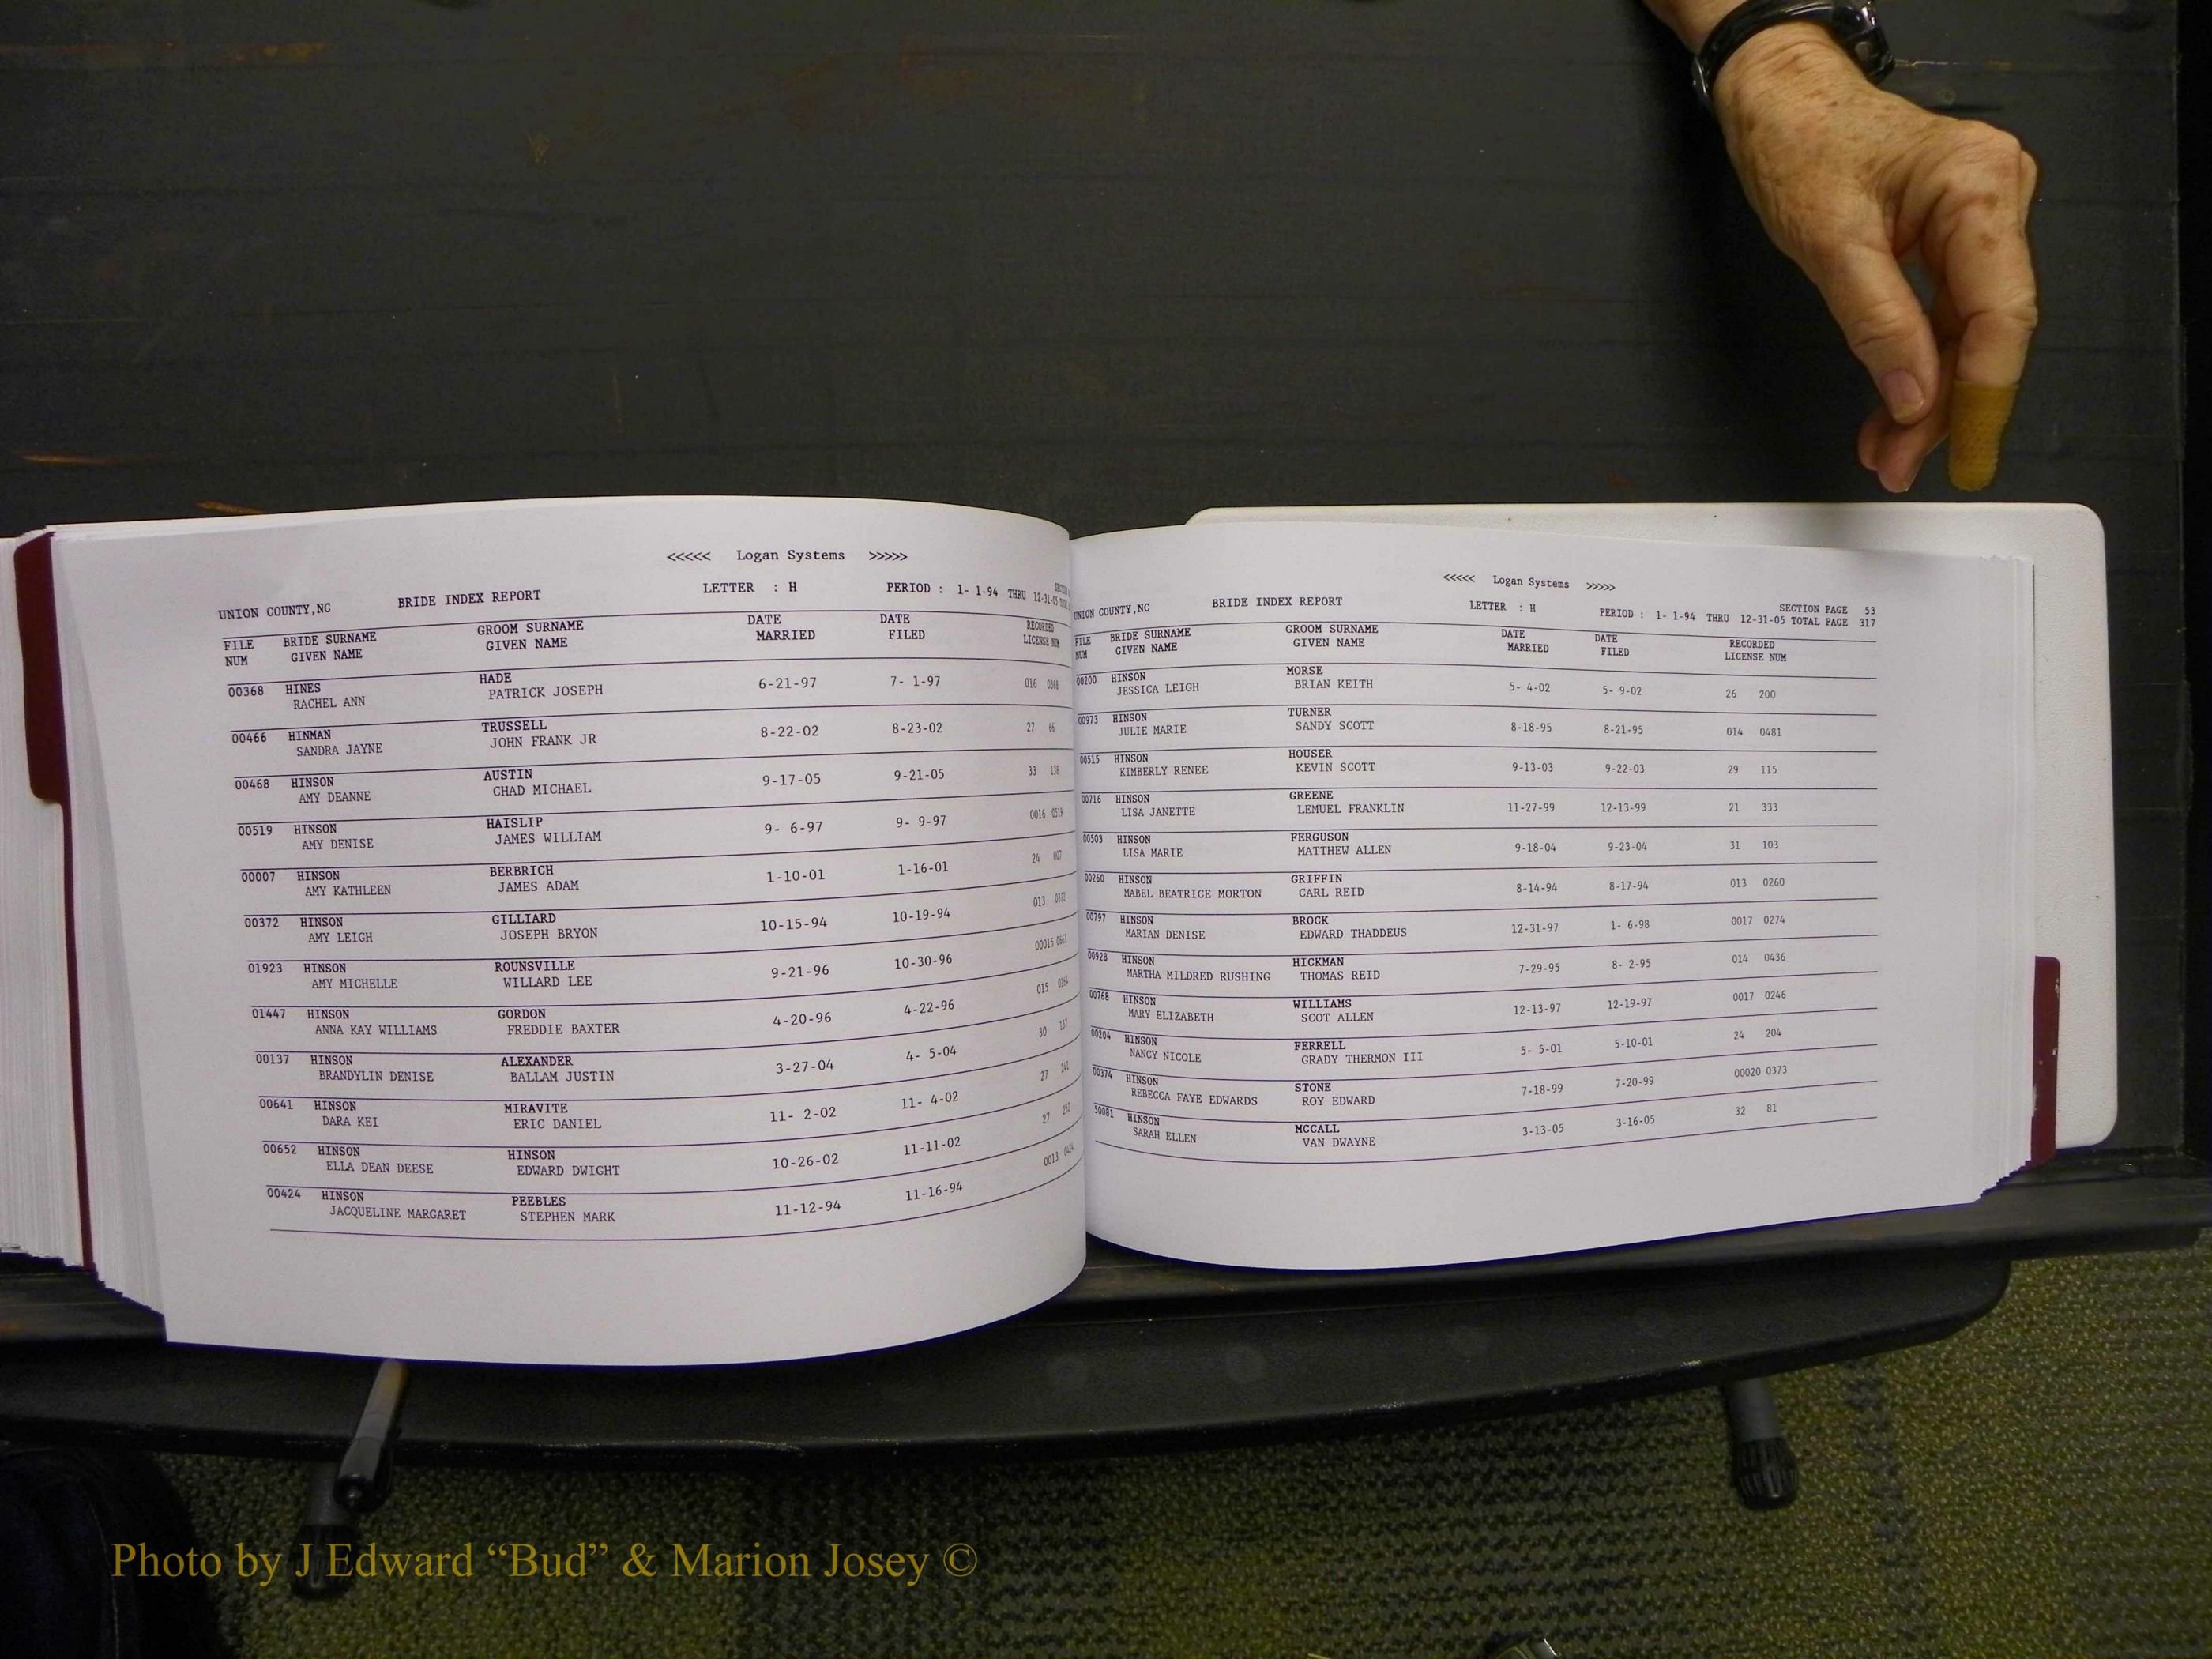 <<<<< Logan Systems >>>>>
UNION COUNTY,NC BRIDE INDEX REPORT LETTER : H PERIOD : 1- 1-94 THRU 12-31-05
FILE BRIDE SURNAME GROOM SURNAME DATE DATE RECORDED
NUM GIVEN NAME GIVEN NAME MARRIED FILED LICENSE NUM
00368 HINES HADE 6-21-97 7- 1-97 016 0368
RACHEL ANN PATRICK JOSEPH
00466 HINMAN TRUSSELL 8-22-02 8-23-02 27 66
SANDRA JAYNE JOHN FRANK JR
00468 HINSON AUSTIN 9-17-05 9-21-05 33
AMY DEANNE CHAD MICHAEL
00519 HINSON HAISLIP 9- 6-97 9- 9-97 0016 0519
AMY DENISE JAMES WILLIAM
00007 HINSON BERBRICH 1-10-01 1-16-01 24 007
AMY KATHLEEN JAMES ADAM
00372 HINSON GILLIARD 10-15-94 10-19-94 013 0372
AMY LEIGH JOSEPH BRYON
01923 HINSON ROUNSVILLE 9-21-96 10-30-96 00015
AMY MICHELLE WILLARD LEE
01447 HINSON GORDON 4-20-96 4-22-96 015
ANNA KAY WILLIAMS FREDDIE BAXTER
00137 HINSON ALEXANDER 3-27-04 4- 5-04 30 137
BRANDYLIN DENISE BALLAM JUSTIN
00641 HINSON MIRAVITE 11- 2-02 11- 4-02 27
DARA KEI ERIC DANIEL
00652 HINSON HINSON 10-26-02 11-11-02 27
ELLA DEAN DEESE EDWARD DWIGHT
00424 HINSON PEEBLES 11-12-94 11-16-94 0013 0424
JACQUELINE MARGARET STEPHEN MARK
<<<<< Logan Systems >>>>>
UNION COUNTY,NC BRIDE INDEX REPORT LETTER : H SECTION PAGE 53
PERIOD : 1- 1-94 THRU 12-31-05 TOTAL PAGE 317
FILE BRIDE SURNAME GROOM SURNAME DATE DATE RECORDED
NUM GIVEN NAME GIVEN NAME MARRIED FILED LICENSE NUM
00200 HINSON MORSE 5- 4-02 5- 9-02 26 200
JESSICA LEIGH BRIAN KEITH
00973 HINSON TURNER 8-18-95 8-21-95 014 0481
JULIE MARIE SANDY SCOTT
00515 HINSON HOUSER 9-13-03 9-22-03 29 115
KIMBERLY RENEE KEVIN SCOTT
00716 HINSON GREENE 11-27-99 12-13-99 21 333
LISA JANETTE LEMUEL FRANKLIN
00503 HINSON FERGUSON 9-18-04 9-23-04 31 103
LISA MARIE MATTHEW ALLEN
00260 HINSON GRIFFIN 8-14-94 8-17-94 013 0260
MABEL BEATRICE MORTON CARL REID
00797 HINSON BROCK 12-31-97 1- 6-98 0017 0274
MARIAN DENISE EDWARD THADDEUS
00928 HINSON HICKMAN 7-29-95 8- 2-95 014 0436
MARTHA MILDRED RUSHING THOMAS REID
00768 HINSON WILLIAMS 12-13-97 12-19-97 0017 0246
MARY ELIZABETH SCOT ALLEN
00204 HINSON FERRELL 5- 5-01 5-10-01 24 204
NANCY NICOLE GRADY THERMON III
00374 HINSON STONE 7-18-99 7-20-99 00020 0373
REBECCA FAYE EDWARDS ROY EDWARD
50081 HINSON MCCALL 3-13-05 3-16-05 32 81
SARAH ELLEN VAN DWAYNE
Photo by J Edward “Bud” & Marion Josey ©